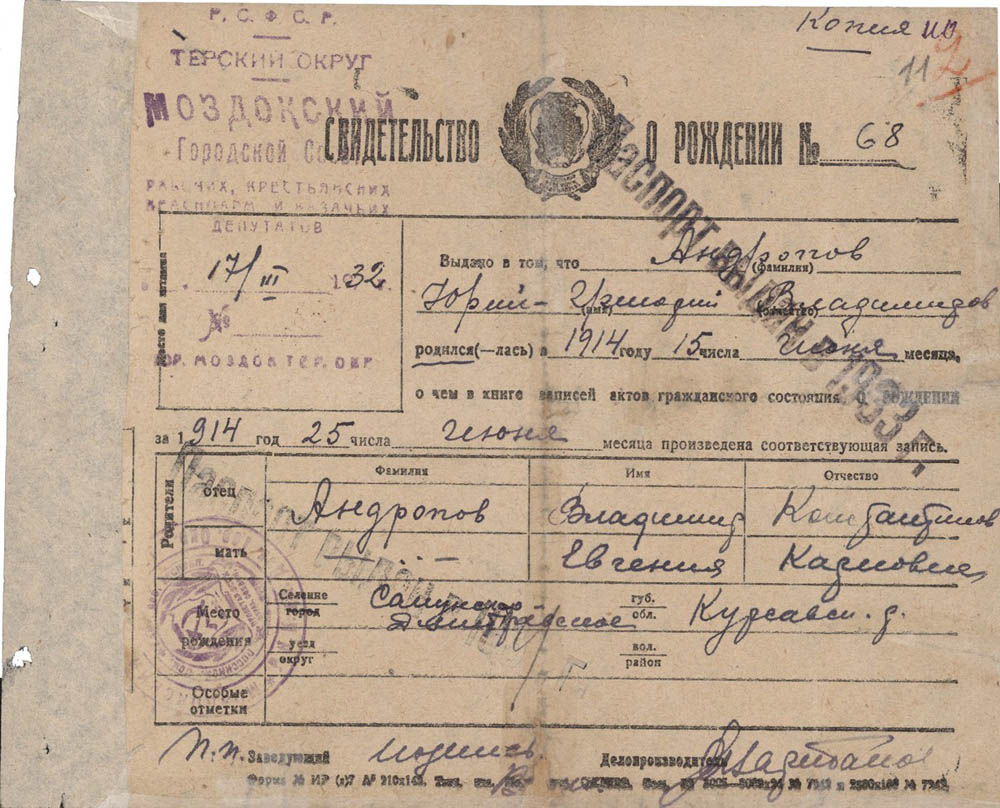 Р. С. Ф. С. Р.
Копия
11 2
ТЕРСКИЙ ОКРУГ
МОЗДОКСКИЙ
Городской Со
СВИДЕТЕЛЬСТВО О РОЖДЕНИИ № 68
РАБОЧИХ, КРЕСТЬЯНСКИХ
КРАСНОАРМ. И КАЗАЧЬИХ
ДЕПУТАТОВ
Паспорт выдан в 1933 г.
Место для штампа
17/III 1932
№
ГОР. МОЗДОК ТЕР. ОКР.
Выдано в том, что Андропов
(фамилия)
Юрий- Владимиров
(имя) (отчество)
родился(—лась) в 1914 году 15 числа июня месяца,
о чем в книге записей актов гражданского состояния о рождении
за 1914 год 25 числа июня месяца произведена соответствующая запись.
Родители
Фамилия Имя Отчество
отец Андропов Владимир Константинов
мать —·— Евгения Карловна
Паспорт выдан
Место рождения
Селение город губ. обл. Курсавск. р.
уезд округ вол. район
Особые отметки
п.п. Заведующий подпись Делопроизводитель
Форма № ИР (з)7 А⁵ 210х148.